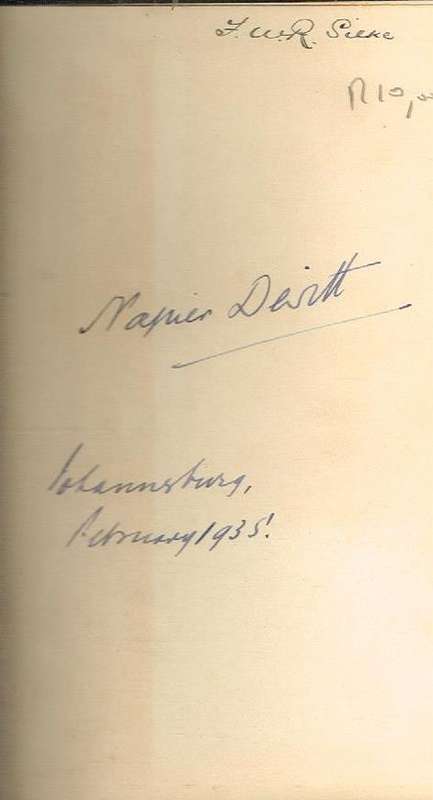 F. W. R. Silke
R10,00
Napier Devitt
Johannesburg,
February 1935!